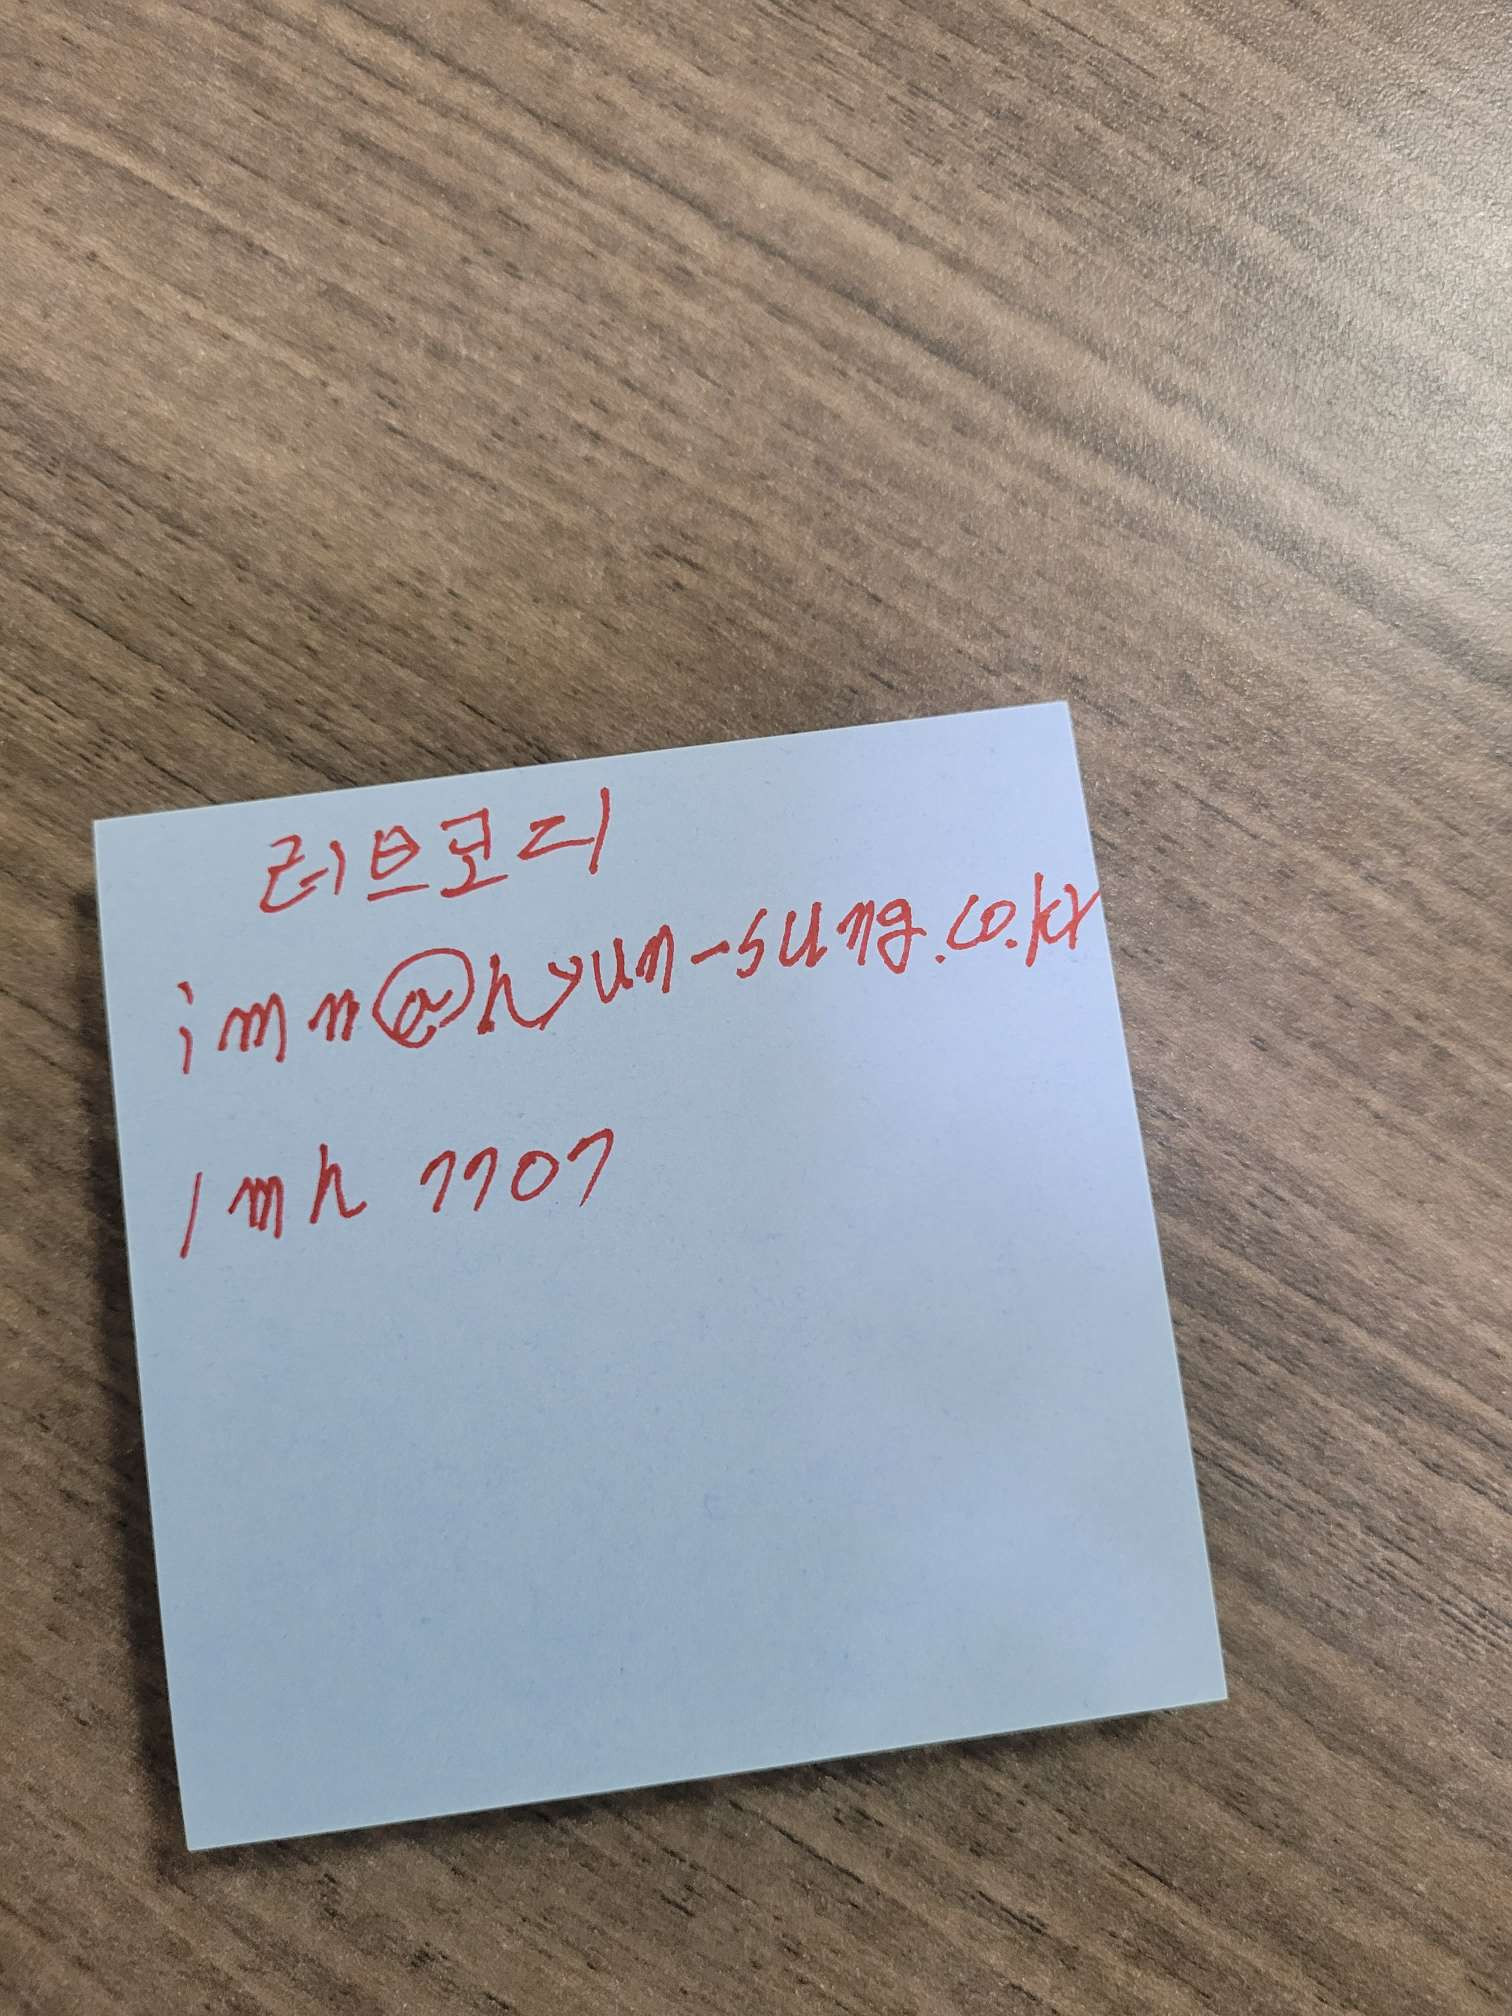 러브로디
imn@hyun-sung.co.kr
lmh 7707